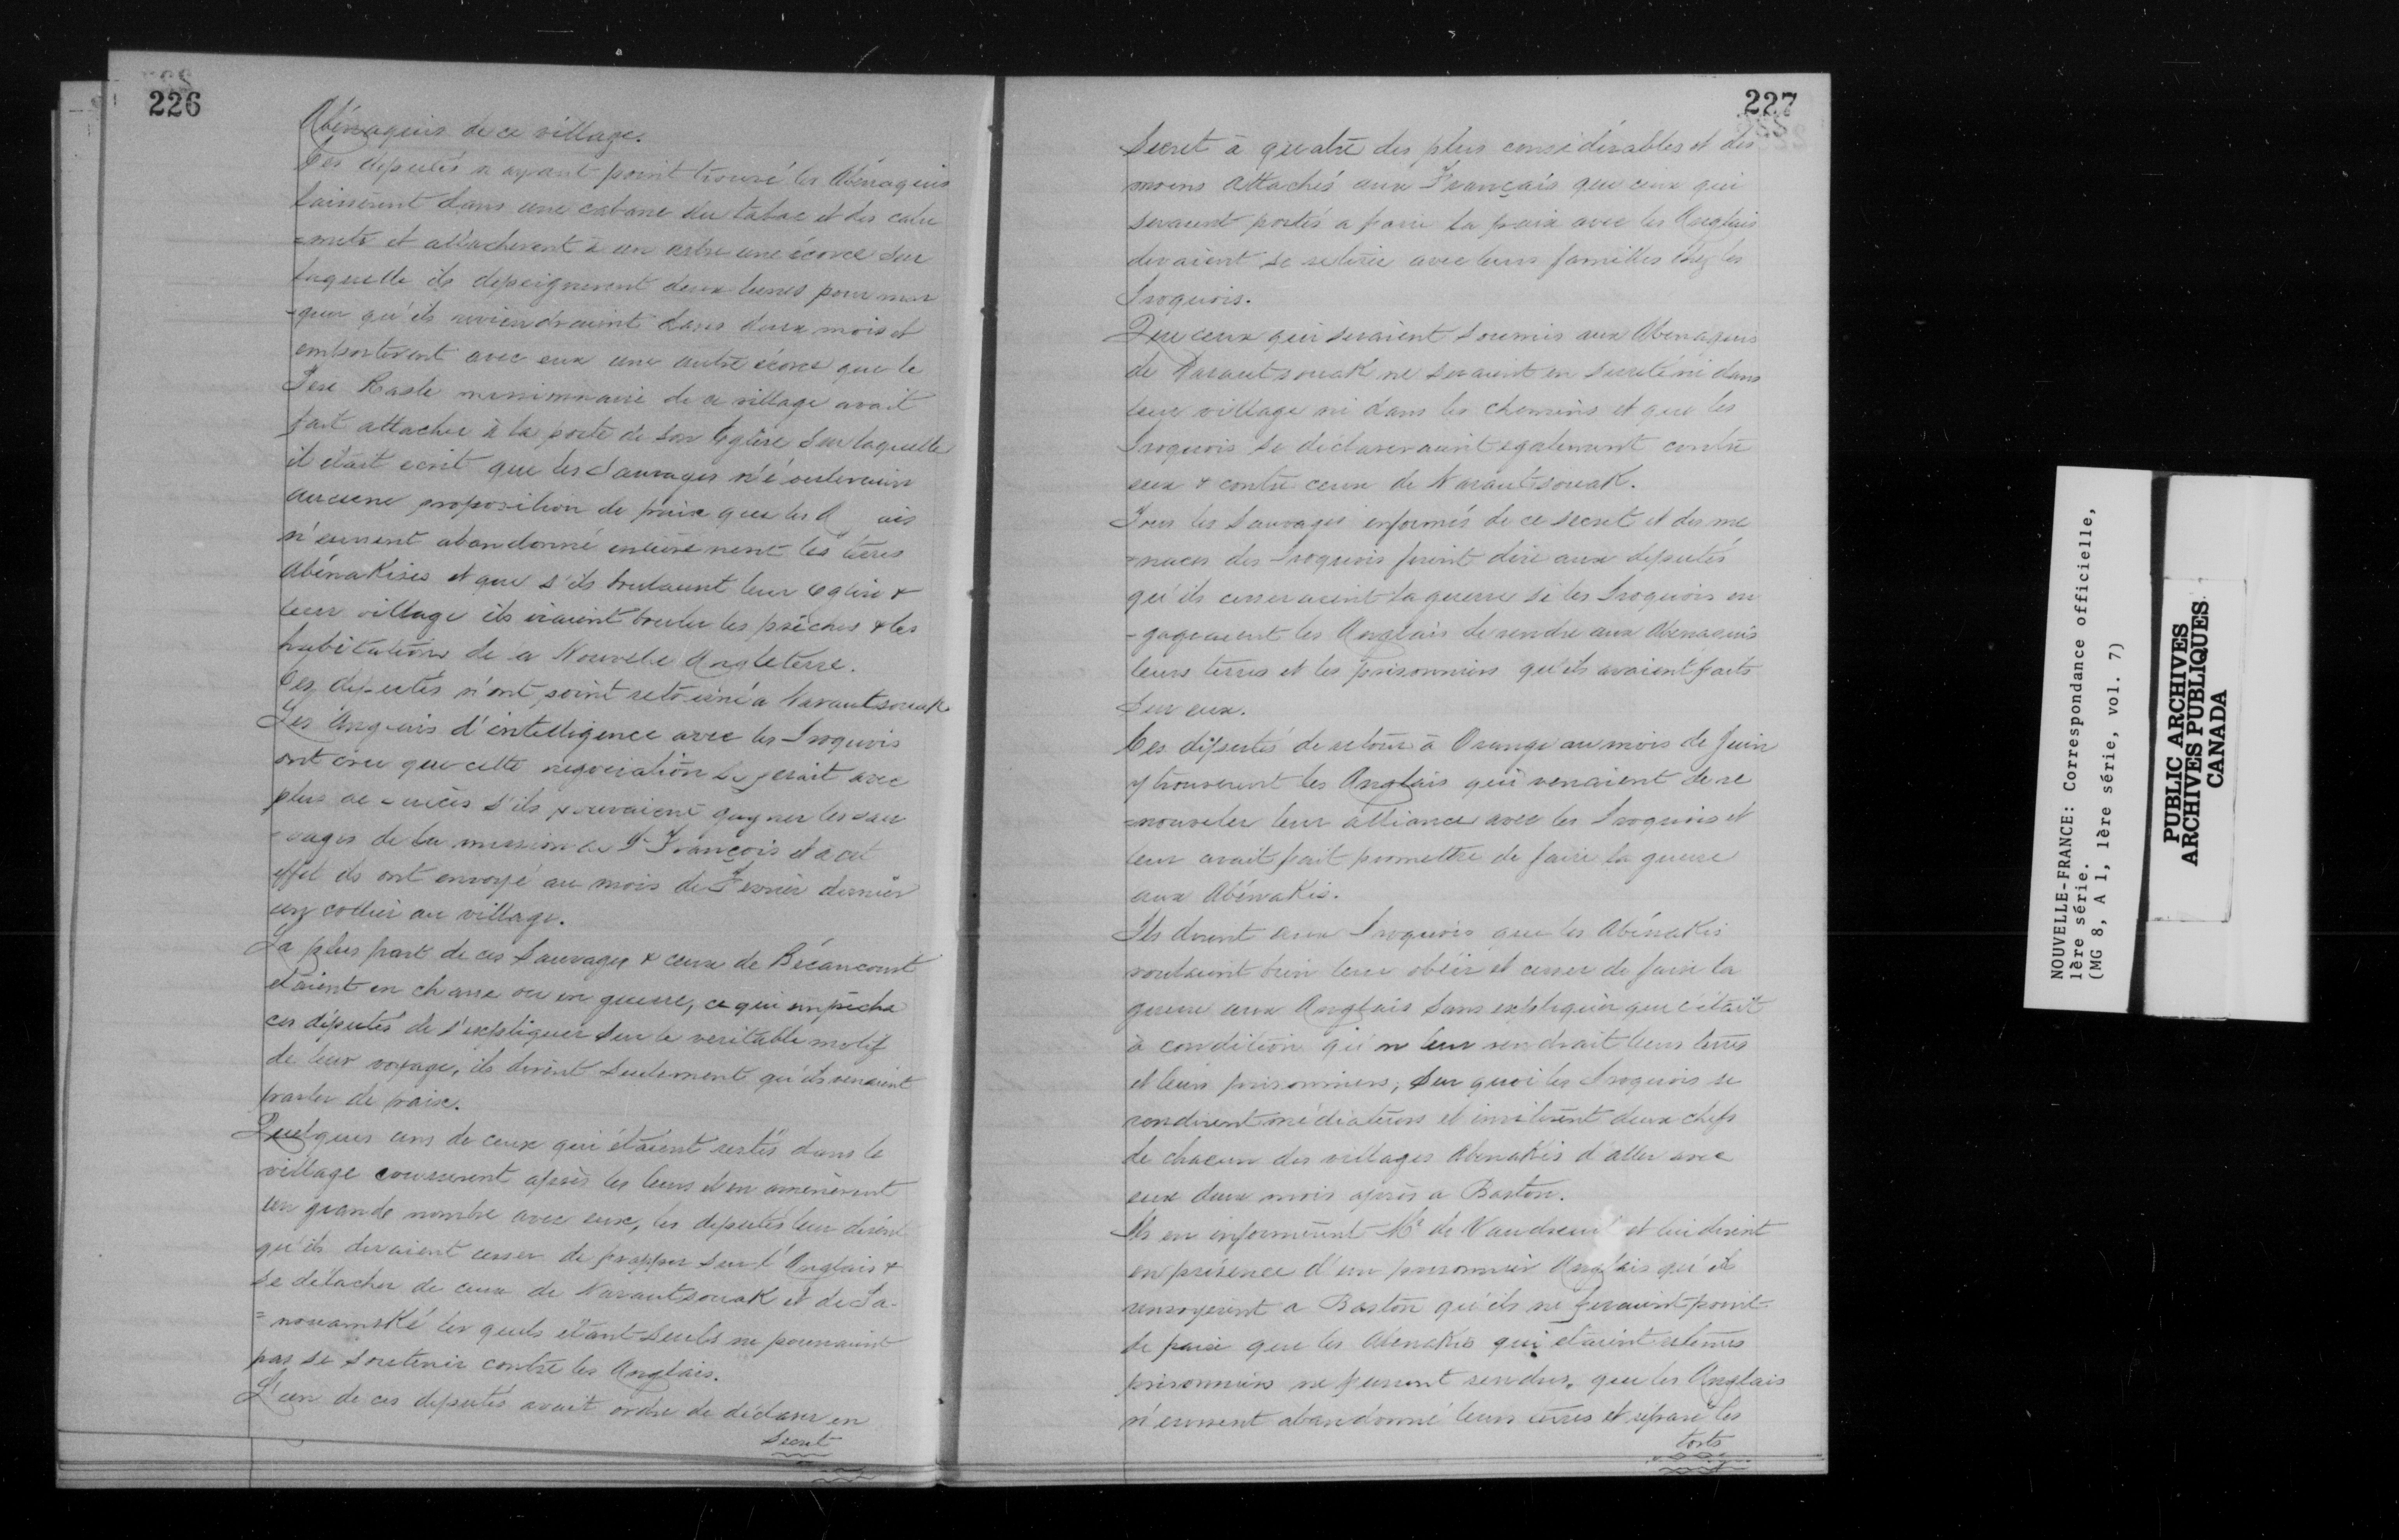 226
Abénaquis de ce village.
Ces deputés n ayant point trouvé les Abénaquis
laissèrent dans une cabane du tabac et des calu
=mets et attacherent à un arbre une écorce sur
laquelle ils depeignerent deux lunes pour mar
-quer qu'ils reviendraient dans deux mois et
emporterent avec eux une autre écorce que le
Pere Rasle missionnaire de ce village avait
fait attacher à la porte de son Eglise sur laquelle
il était ecrit que les Sauvages n'écouteraient
aucune proposition de paix que les A ais
n'eussent abandonné entièrement les terres
Abénakises et que s'ils brulaient leur Eglise &
leur village ils iraient bruler les prêches & les
habitations de la Nouvelle Angleterre.
Ces deputés n'ont point retourné a Narautsouak
Les Anglais d'intelligence avec les Iroquois
ont cru que cette negociation se ferait avec
plus de succès s'ils pouvaient gagner les sau
-vages de la mission de St François et a cet
effet ils ont envoyé au mois de Fevrier dernier
un collier au village.
La plus part de ces Sauvages & ceux de Bécancourt
etaient en chasse ou en guerre, ce qui empêcha
ces députés de s'expliquer sur le veritable motif
de leur voyage, ils dirent seulement qu'ils venaient
parler de paix.
Quelques uns de ceux qui étaient restés dans le
village coururent après les leurs et en amenèrent
un grande nombre avec eux, les deputés leur dirent
qu'ils devaient cesser de frapper sur l'Anglais &
se détacher de ceux de Narautsouak et de Pa-
=nouamské les quels étant seuls ne pourraient
pas se soutenir contre les Anglais.
L'un de ces deputés avait ordre de déclarer en
Secret
227
Secret à quatre des plus considérables et des
moins attachés aux Français que ceux qui
seraient portés a faire la paix avec les Anglais
devaient se retirer avec leurs familles chez les
Iroquois.
Que ceux qui seraient soumis aux Abenaquis
de Narautsouak ne seraient en sureté ni dans
leur village ni dans les chemins et que les
Iroquois se déclareraient egalement contre
eux & contre ceux de Narautsouak.
Tous les Sauvages informés de ce secret et des me
=naces des Iroquois firent dire aux deputés
qu'ils cesseraient la guerre si les Iroquois en
-gageaient les Anglais de rendre aux Abenaquis
leurs terres et les prisonniers qu'ils avaient faits
sur eux.
Ces députés de retour à Orange au mois de Juin
y trouverent les Anglais qui venaient de re
=nouveler leur alliance avec les Iroquois et
leur avait fait promettre de faire la guerre
aux Abénakis.
Ils dirent aux Iroquois que les Abénakis
voulaient bien leur obéir et cesser de faire la
guerre aux Anglais sans expliquer que c'était
à condition qu'on leur rendrait leurs terres
et leurs prisonniers, sur quoi les Iroquois se
rendirent médiateurs et inviterent deux chefs
de chacun des villages Abenakis d'aller avec
eux deux mois après a Baston.
Ils en informèrent Mr de Vaudreuil et lui dirent
en présence d'un prisonnier Anglais qu'ils
renvoyerent a Baston qu'ils ne feraient point
de paix que les Abenakis qui etaient retenus
prisonniers ne fussent rendus, que les Anglais
n'eussent abandonné leurs terres et reparé les
torts
NOUVELLE-FRANCE: Correspondance officielle,
1ère série.
(MG 8, A 1, 1ère série, vol. 7)
PUBLIC ARCHIVES
ARCHIVES PUBLIQUES
CANADA